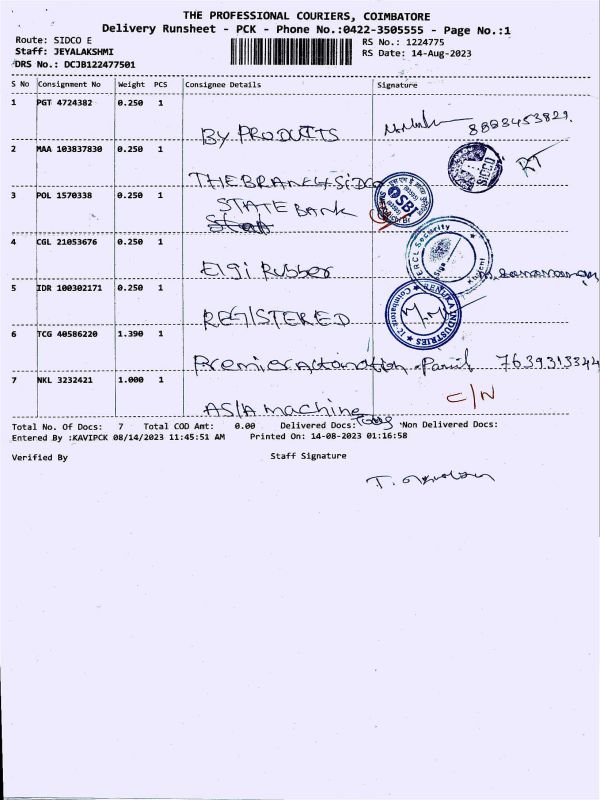 THE PROFESSIONAL COURIERS, COIMBATORE
Delivery Runsheet - PCK - Phone No.:0422-3505555 - Page No.:1
Route: SIDCO E
RS No.: 1224775
Staff: JEYALAKSHMI
RS Date: 14-Aug-2023
DRS No.: DCJB122477501
S No Consignment No Weight PCS Consignee Details Signature
1 PGT 4724382 0.250 1
BY PRODUCTS 8883453829.
2 MAA 103837830 0.250 1
SIDCO RT
THE BRANCH SIDCO
3 POL 1570338 0.250 1
SBI
STATE BANK
4 CGL 21053676 0.250 1
ERCL Security
Sign
Elgi Rubber
5 IDR 100302171 0.250 1
RENUKA INDUSTRIES
Coimbatore-21
REGISTERED
6 TCG 40586220 1.390 1
Premier automation 7639313344
7 NKL 3232421 1.000 1
C/N
ASIA machine Tools
Total No. Of Docs: 7 Total COD Amt: 0.00 Delivered Docs: Non Delivered Docs:
Entered By :KAVIPCK 08/14/2023 11:45:51 AM Printed On: 14-08-2023 01:16:58
Verified By Staff Signature